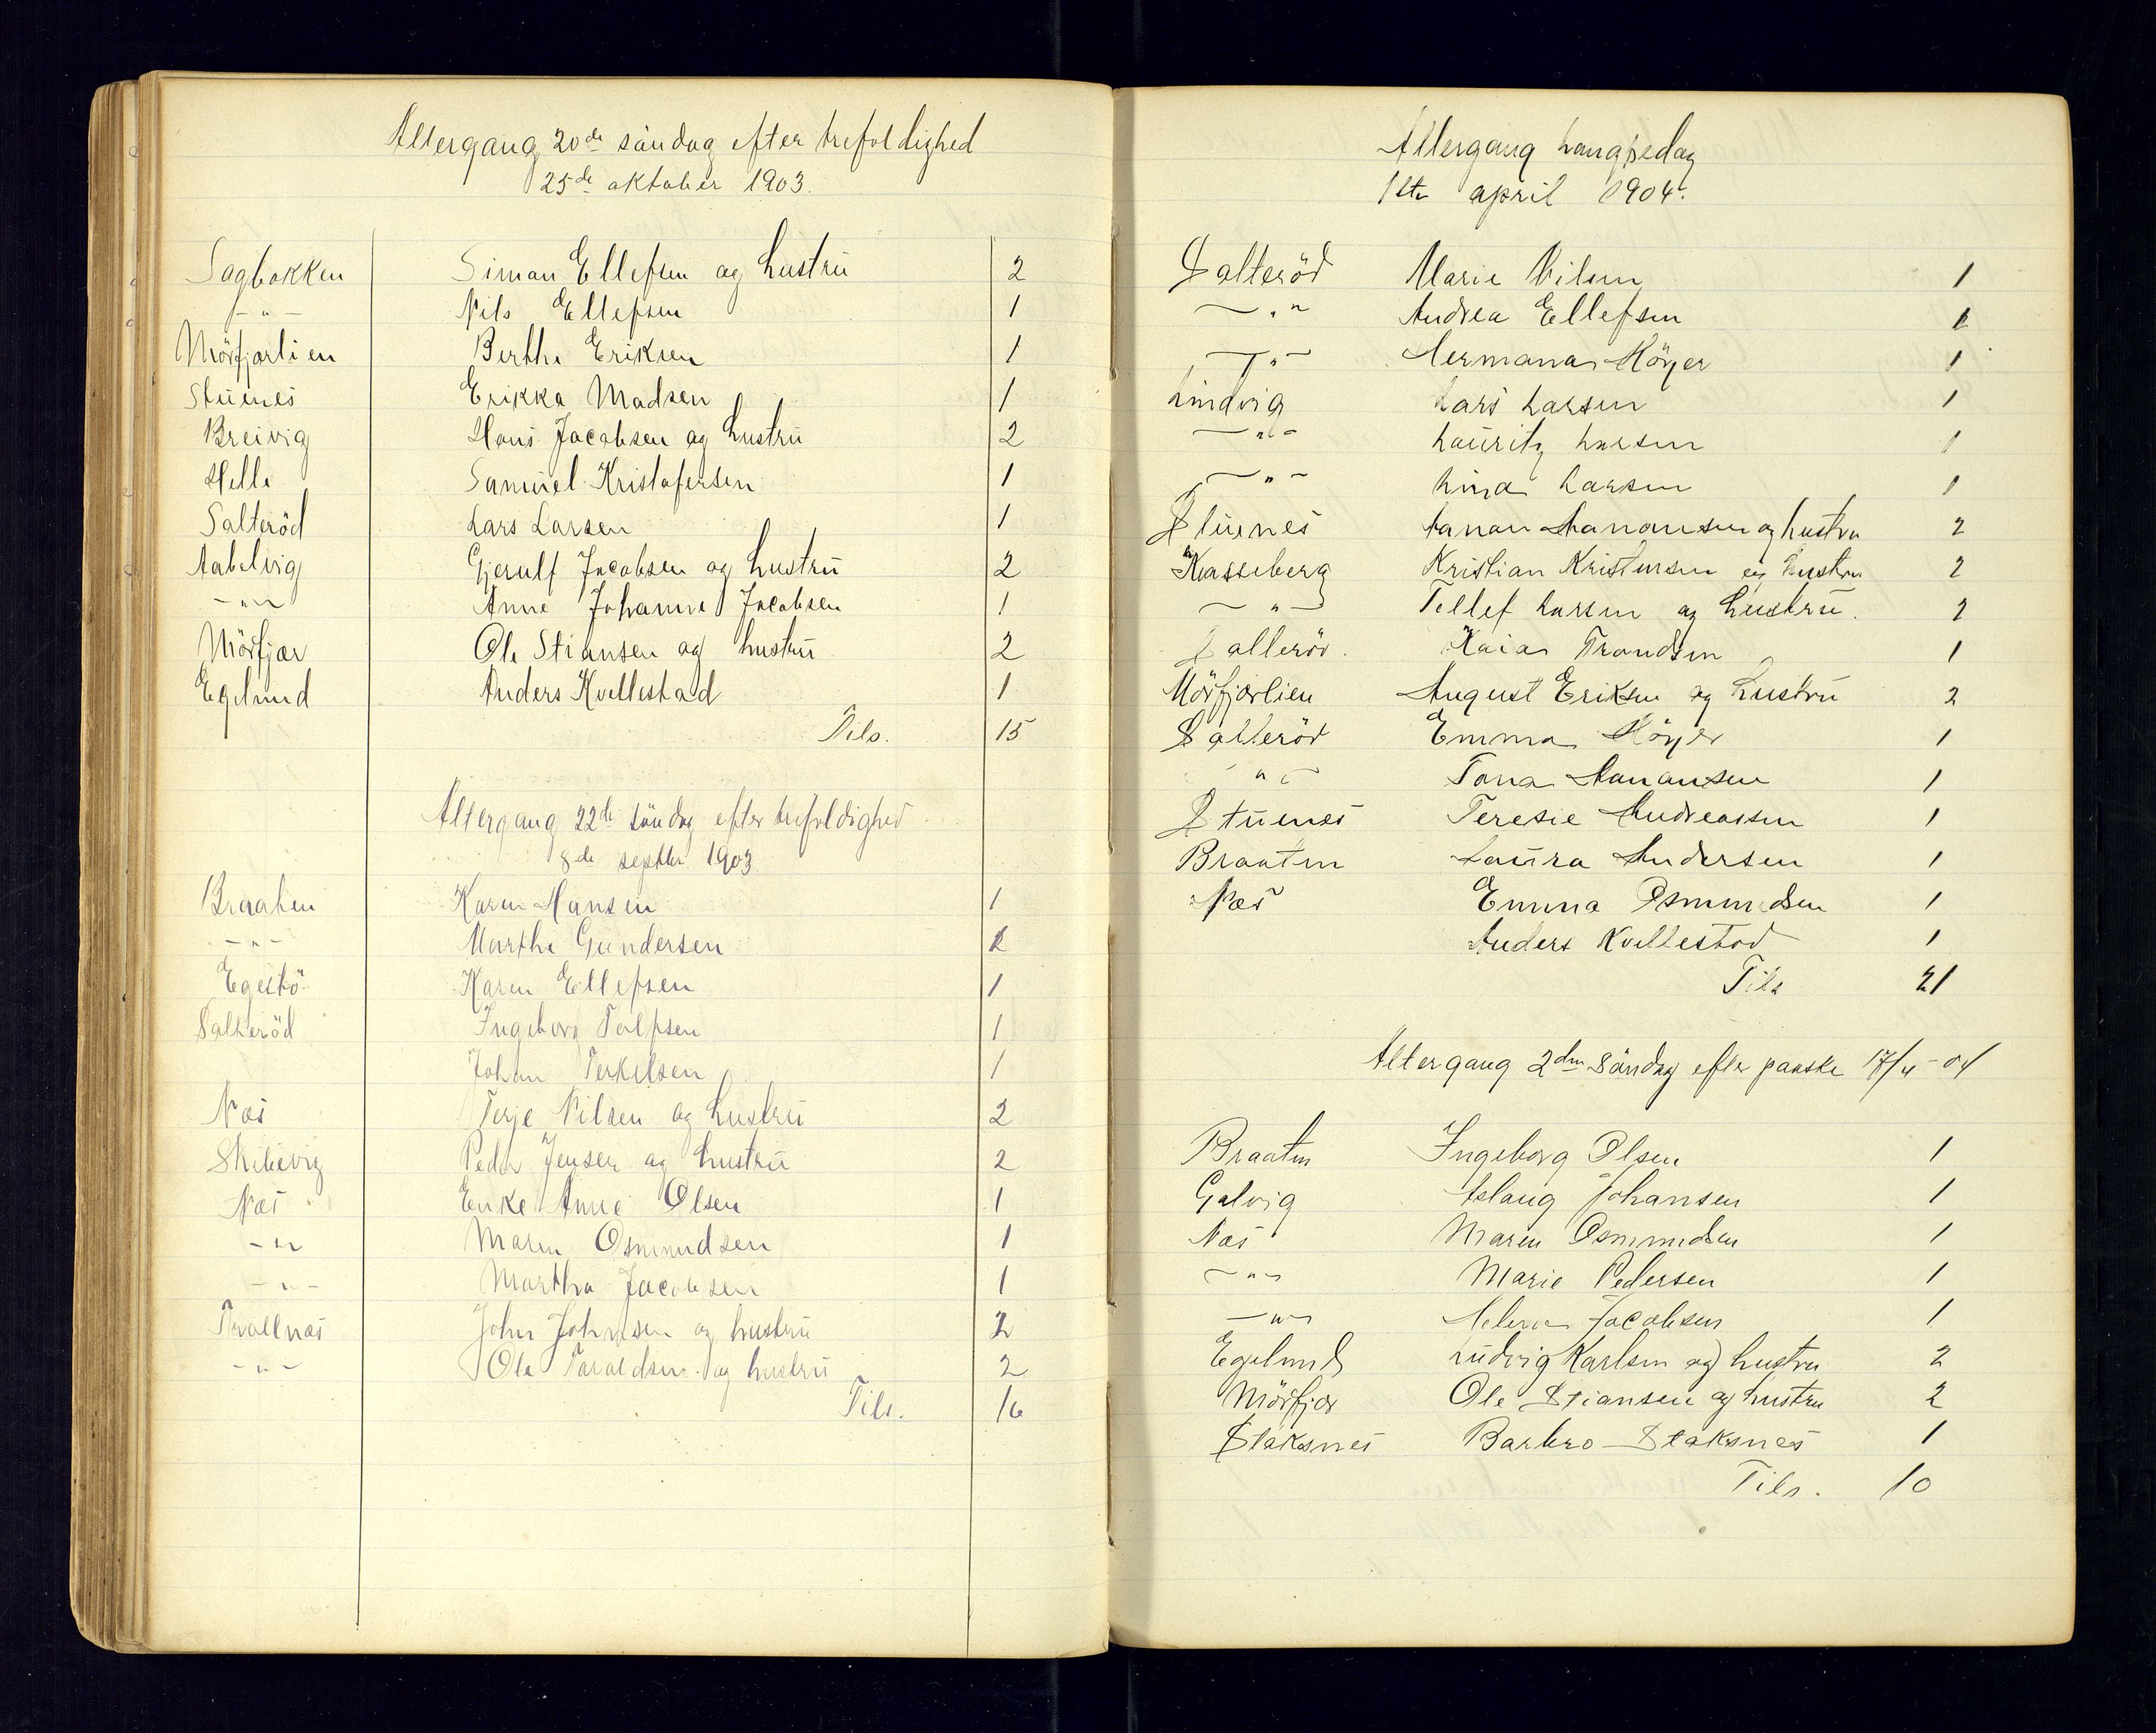 Altergang 20de söndag efter trefoldighed
25de oktober 1903.
Sagbakken Simon Ellefsen og hustru 2
- " - Nils Ellefsen 1
Mörfjærlien Berthe Eriksen 1
Stuenes Erikka Madsen 1
Breivig Hans Jacobsen og hustru 2
Helle Samuel Kristofersen 1
Salteröd Lars Larsen 1
Aabelvig Gjerulf Jacobsen og hustru 2
- " - Anne Johanne Jacobsen 1
Mörfjær Ole Stiansen og hustru 2
Egelund Anders Kvellestad 1
Tils. 15
Altergang 22de söndag efter trefoldighed
8de septbr. 1903.
Braaten Karen Hansen 1
- " - Marthe Gundersen 1
Egestö Karen Ellefsen 1
Salteröd Ingeborg 1
Johan Terkelsen 1
Næs Terje Nilsen og hustru 2
Skibevig Peder Jensen og hustru 2
Næs Enke Anne Olsen 1
- " - Maren Osmundsen 1
- " - Martha Jacobsen 1
John Johnsen og hustru 2
- " - Ole Taraldsen og hustru 2
Tils. 16
Altergang Langfredag
1ste april 1904.
Salteröd Marie Nilsen 1
- " - Andrea Ellefsen 1
- " - Hermana Höyer 1
Lindvig Lars Larsen 1
- " - Lauritz Larsen 1
- " - Lina Larsen 1
Stuenes Aanon Aanonsen og hustru 2
Kasseberg Kristian Kristensen og hustru 2
- " - Tellef Larsen og hustru. 2
Salteröd. Kaia Trondsen 1
Mörfjærlien August Eriksen og hustru 2
Salteröd Emma Höyer 1
- " - Tona Aanonsen 1
Stuenes Teresie Andreassen 1
Braaten Laura Andersen 1
Næs Emma Osmundsen 1
Anders Kvellestad 1
Tils 21
Altergang 2den Söndag efter paaske 17/4 - 04
Braaten Ingeborg Olsen 1
Galvig Aslaug Johansen 1
Næs Maren Osmundsen 1
- " - Marie Pedersen 1
- " - Helene Jacobsen 1
Egelund Ludvig Karlsen og hustru 2
Mörfjær Ole Stiansen og hustru 2
Staksnes Barbro Staksnes 1
Tils. 10